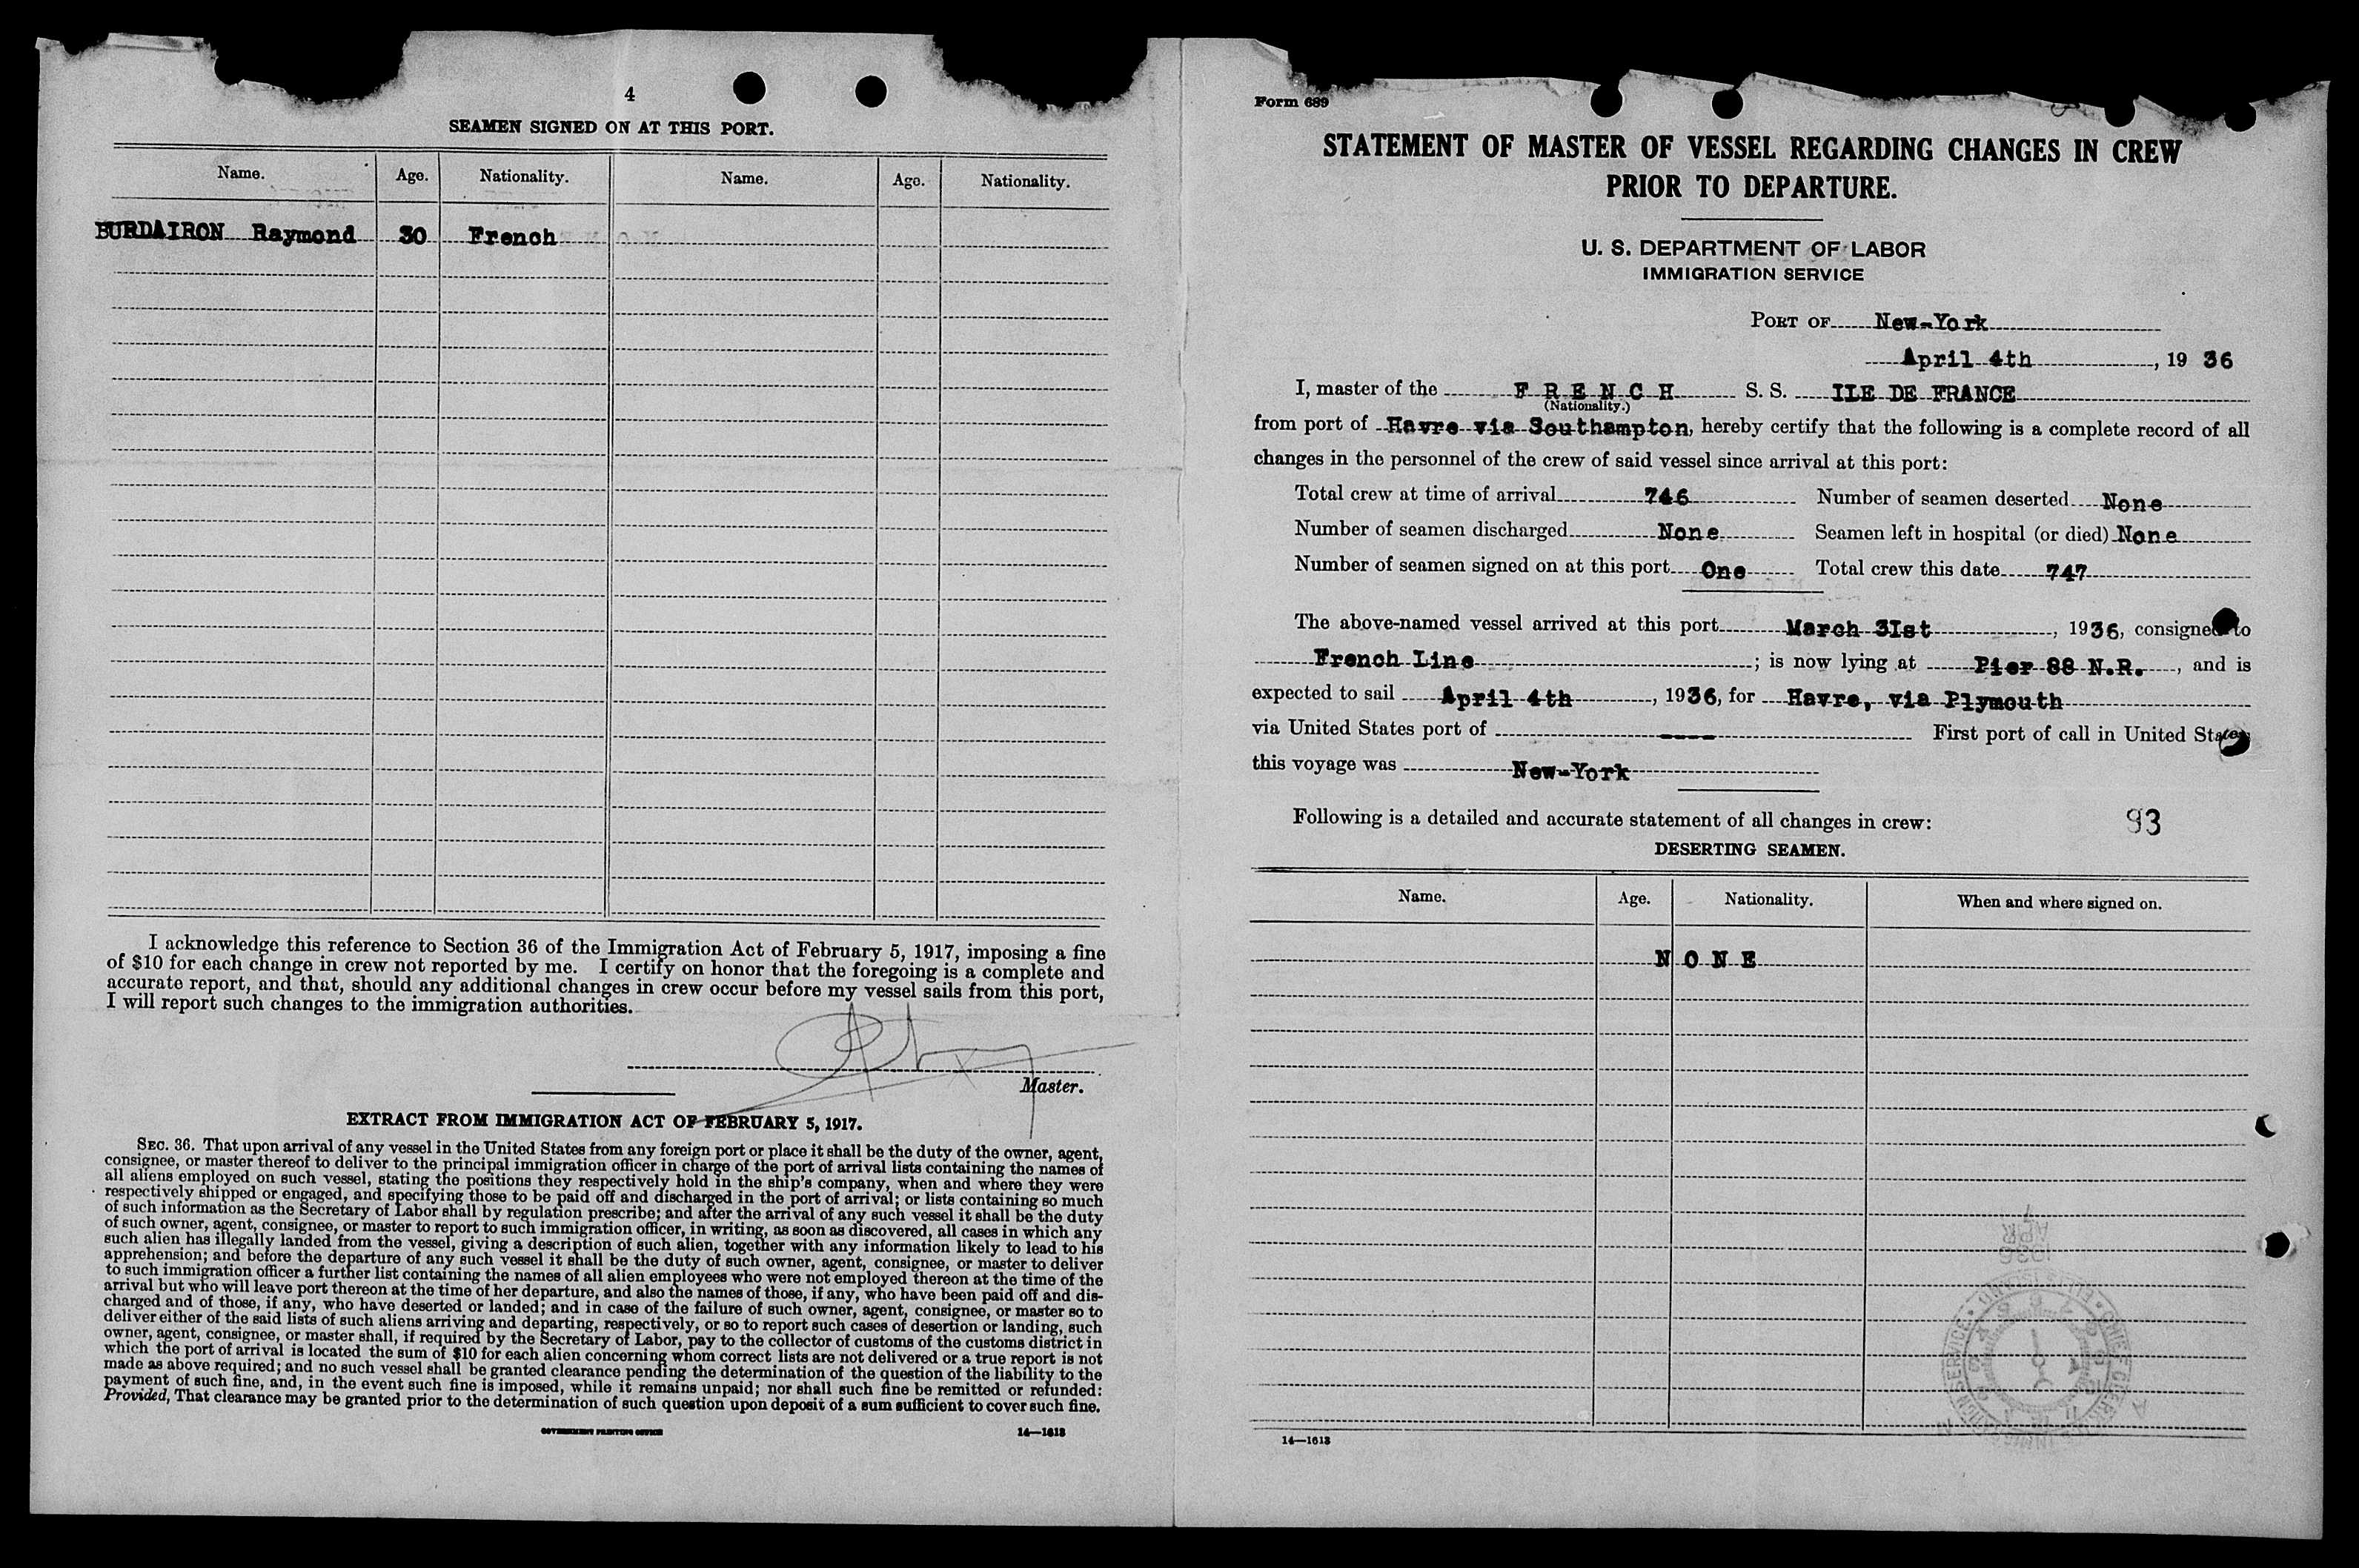 4
SEAMEN SIGNED ON AT THIS PORT.
Name. Age. Nationality. Name. Age. Nationality.
BURDAIRON Raymond 30 French
I acknowledge this reference to Section 36 of the Immigration Act of February 5, 1917, imposing a fine
of $10 for each change in crew not reported by me. I certify on honor that the foregoing is a complete and
accurate report, and that, should any additional changes in crew occur before my vessel sails from this port,
I will report such changes to the immigration authorities.
Master.
EXTRACT FROM IMMIGRATION ACT OF FEBRUARY 5, 1917.
SEC. 36. That upon arrival of any vessel in the United States from any foreign port or place it shall be the duty of the owner, agent,
consignee, or master thereof to deliver to the principal immigration officer in charge of the port of arrival lists containing the names of
all aliens employed on such vessel, stating the positions they respectively hold in the ship's company, when and where they were
respectively shipped or engaged, and specifying those to be paid off and discharged in the port of arrival; or lists containing so much
of such information as the Secretary of Labor shall by regulation prescribe; and after the arrival of any such vessel it shall be the duty
of such owner, agent, consignee, or master to report to such immigration officer, in writing, as soon as discovered, all cases in which any
such alien has illegally landed from the vessel, giving a description of such alien, together with any information likely to lead to his
apprehension; and before the departure of any such vessel it shall be the duty of such owner, agent, consignee, or master to deliver
to such immigration officer a further list containing the names of all alien employees who were not employed thereon at the time of the
arrival but who will leave port thereon at the time of her departure, and also the names of those, if any, who have been paid off and dis-
charged and of those, if any, who have deserted or landed; and in case of the failure of such owner, agent, consignee, or master so to
deliver either of the said lists of such aliens arriving and departing, respectively, or so to report such cases of desertion or landing, such
owner, agent, consignee, or master shall, if required by the Secretary of Labor, pay to the collector of customs of the customs district in
which the port of arrival is located the sum of $10 for each alien concerning whom correct lists are not delivered or a true report is not
made as above required; and no such vessel shall be granted clearance pending the determination of the question of the liability to the
payment of such fine, and, in the event such fine is imposed, while it remains unpaid; nor shall such fine be remitted or refunded:
Provided, That clearance may be granted prior to the determination of such question upon deposit of a sum sufficient to cover such fine.
GOVERNMENT PRINTING OFFICE 14—1613
Form 689
STATEMENT OF MASTER OF VESSEL REGARDING CHANGES IN CREW
PRIOR TO DEPARTURE.
U. S. DEPARTMENT OF LABOR
IMMIGRATION SERVICE
PORT OF New-York
April 4th, 19 36
I, master of the F R E N C H S. S. ILE DE FRANCE
(Nationality.)
from port of Havre via Southampton, hereby certify that the following is a complete record of all
changes in the personnel of the crew of said vessel since arrival at this port:
Total crew at time of arrival 746 Number of seamen deserted None
Number of seamen discharged None Seamen left in hospital (or died) None
Number of seamen signed on at this port One Total crew this date 747
The above-named vessel arrived at this port March 3Ist, 1936, consigned to
French Line; is now lying at Pier 88 N.R., and is
expected to sail April 4th, 1936, for Havre, via Plymouth
via United States port of ---- First port of call in United States
this voyage was New-York
Following is a detailed and accurate statement of all changes in crew: 93
DESERTING SEAMEN.
Name. Age. Nationality. When and where signed on.
N O N E
14—1613